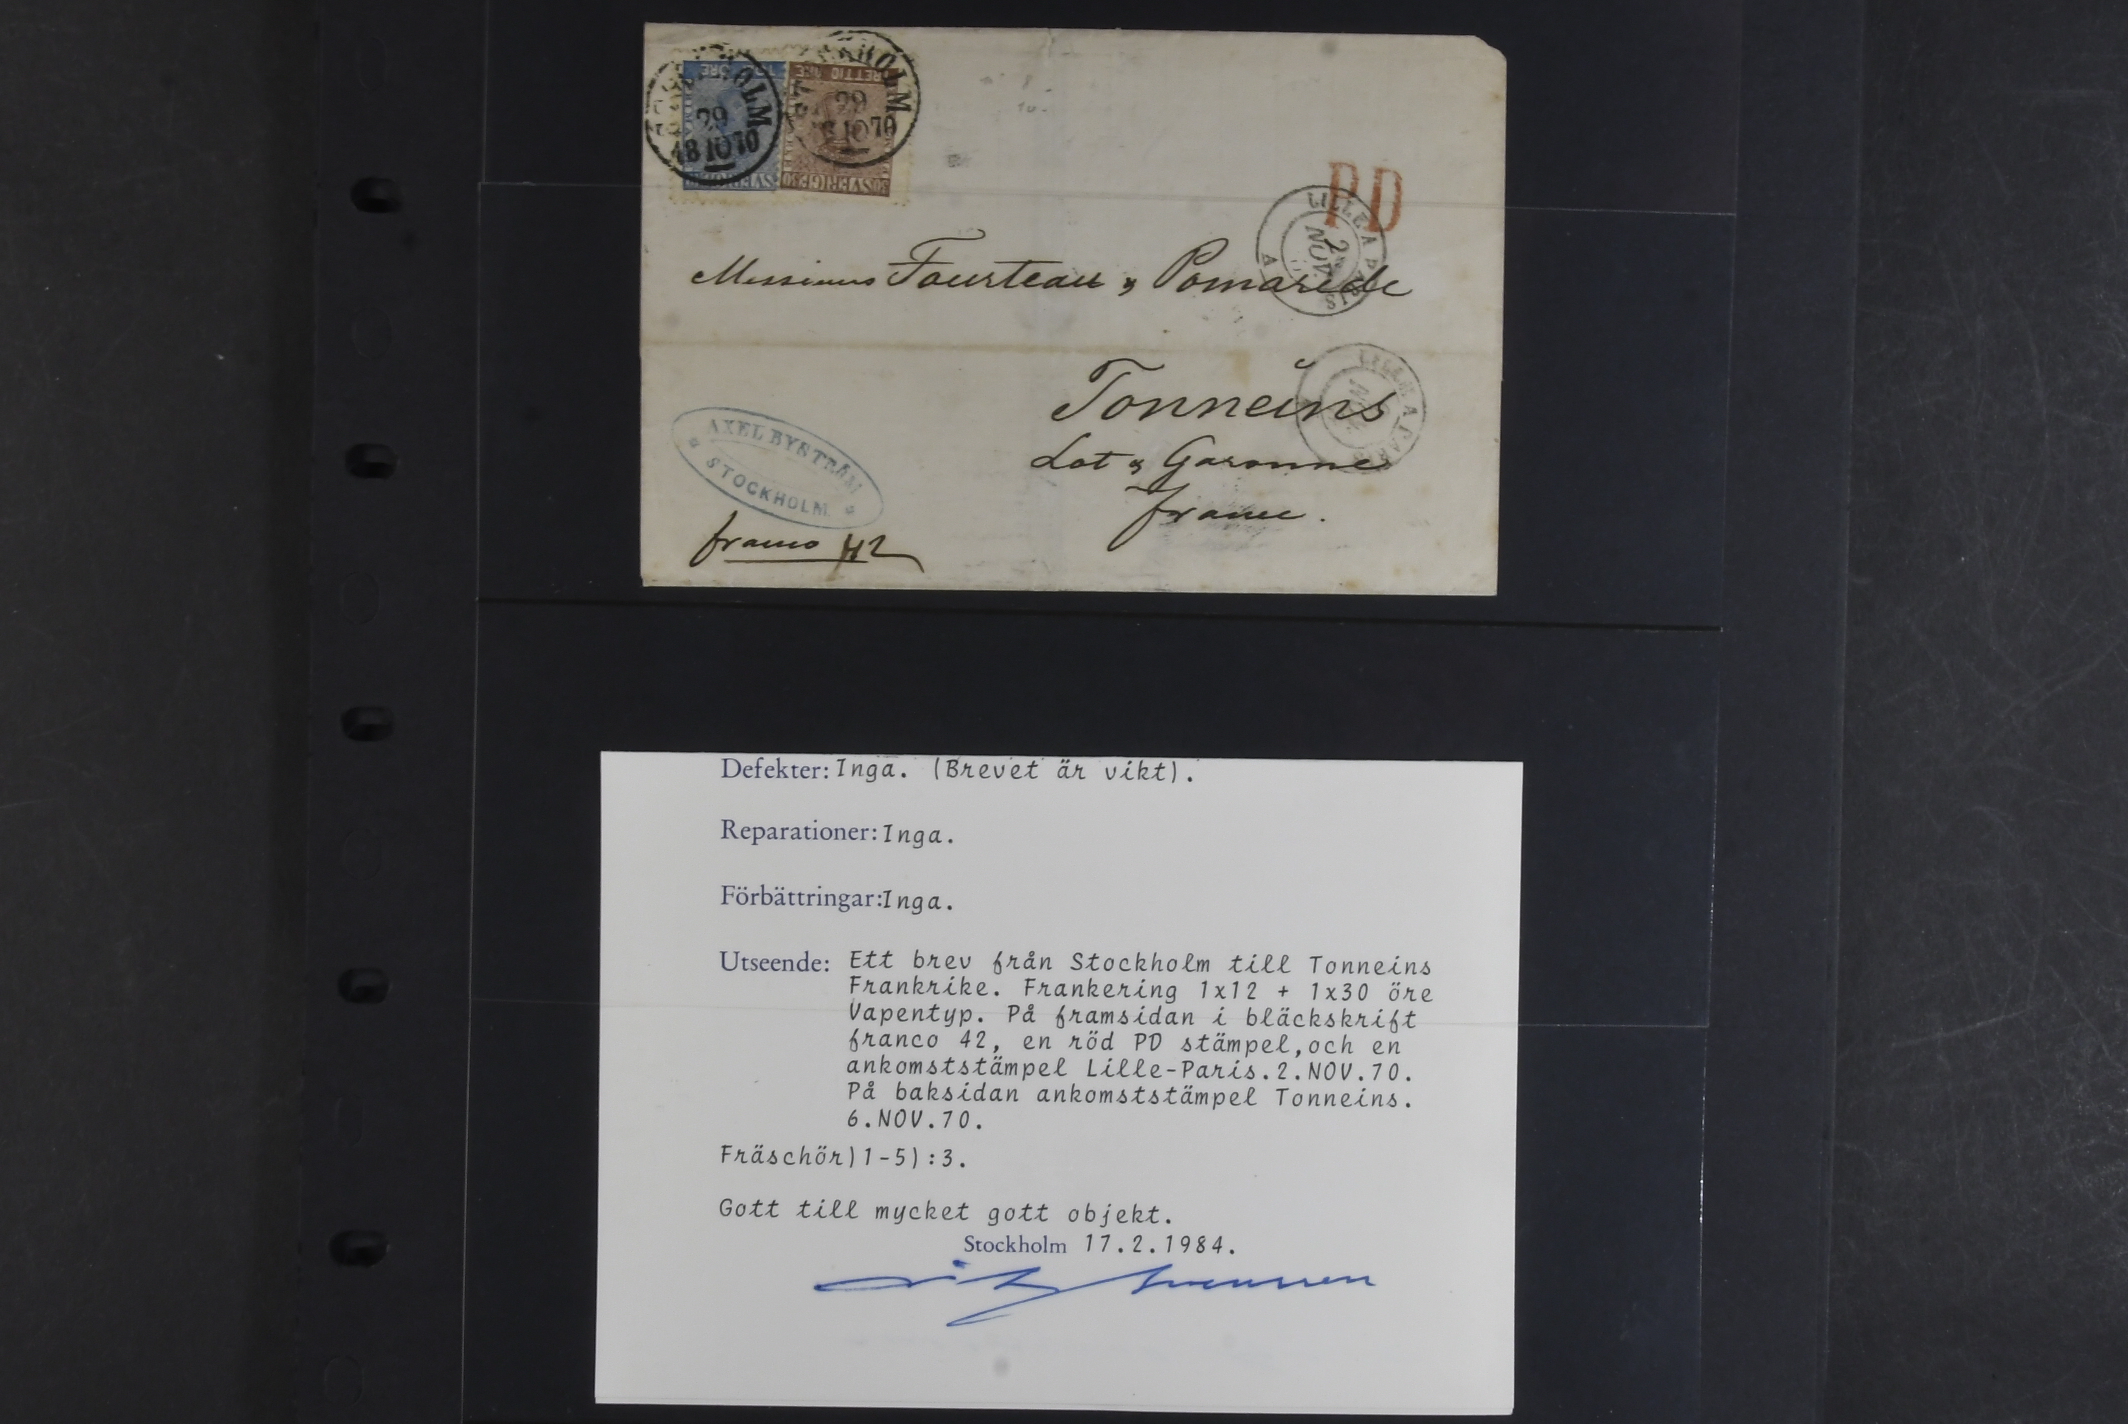 STOCKHOLM
29
10 70
STOCKHOLM
29
10 70
ÖRE
TRETTIO ÖRE
SVERIGE 30
PD
LILLE A PARIS
2
NOV.
A
Messieurs Fourteau & Pomarède
LILLE A PARIS
NOV.
Tonneins
Lot & Garonne
france.
AXEL BYSTRÖM
STOCKHOLM.
franco 42
Defekter: Inga. (Brevet är vikt).
Reparationer: Inga.
Förbättringar: Inga.
Utseende: Ett brev från Stockholm till Tonneins
Frankrike. Frankering 1x12 + 1x30 öre
Vapentyp. På framsidan i bläckskrift
franco 42, en röd PD stämpel,och en
ankomststämpel Lille-Paris.2.NOV.70.
På baksidan ankomststämpel Tonneins.
6.NOV.70.
Fräschör)1-5):3.
Gott till mycket gott objekt.
Stockholm 17.2.1984.